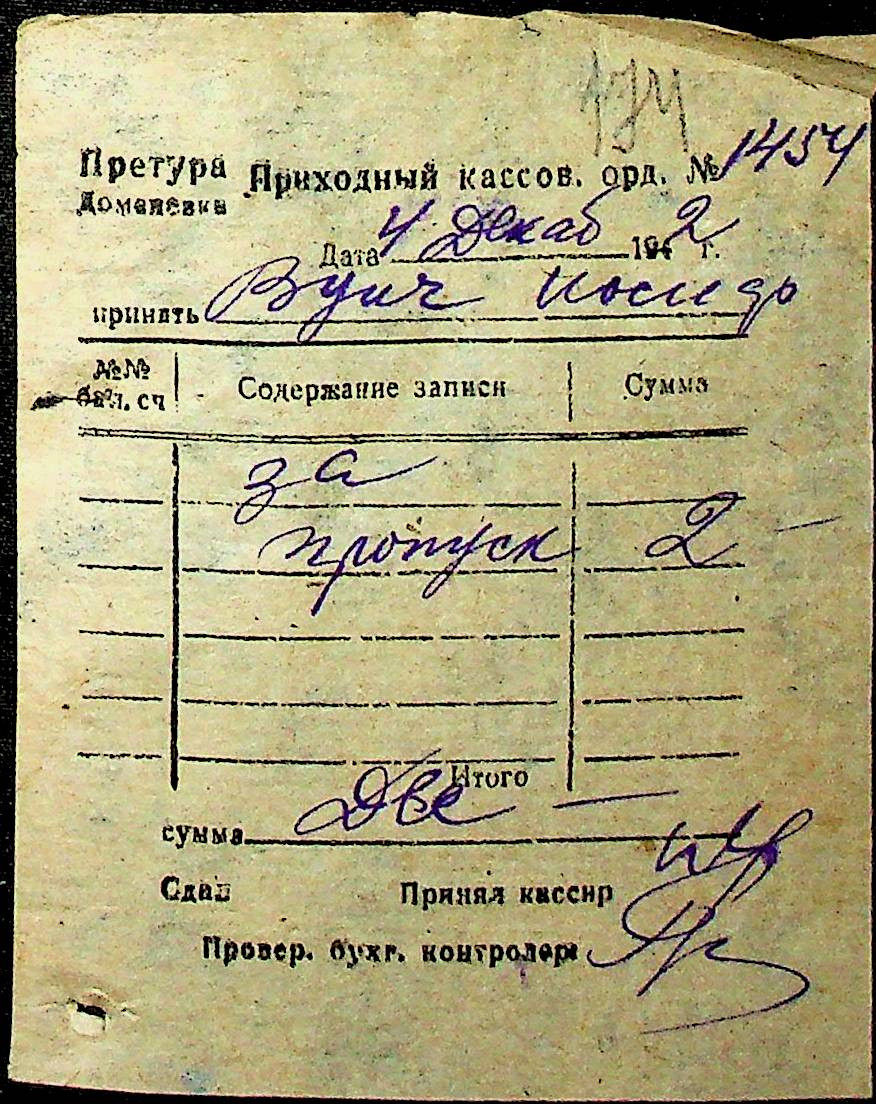 174
Претура Приходный кассов. орд. № 1454
Доманевка
Дата 4 Декаб 1942 г.
принять Вуич Иосиф
№№ бал. сч Содержание записи Сумма
за
пропуск 2 —
Итого
сумма Две —
Сдал Принял кассир
Провер. бухг. контролер